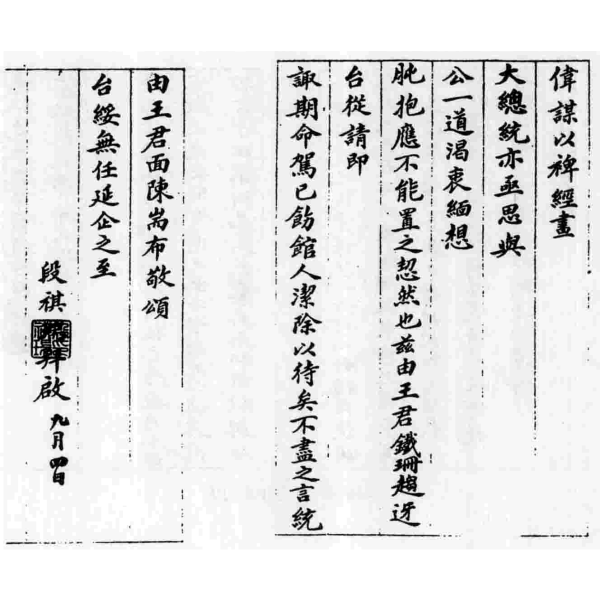 偉謀以裨經畫
大總統亦亟思與
公一道渴衷緬想
肫抱應不能置之恝然也茲由王君鐵珊趨迓
台從請即
諏期命駕已飭館人潔除以待矣不盡之言統
由王君面陳耑布敬頌
台綏無任延企之至
段祺 拜啟 九月四日